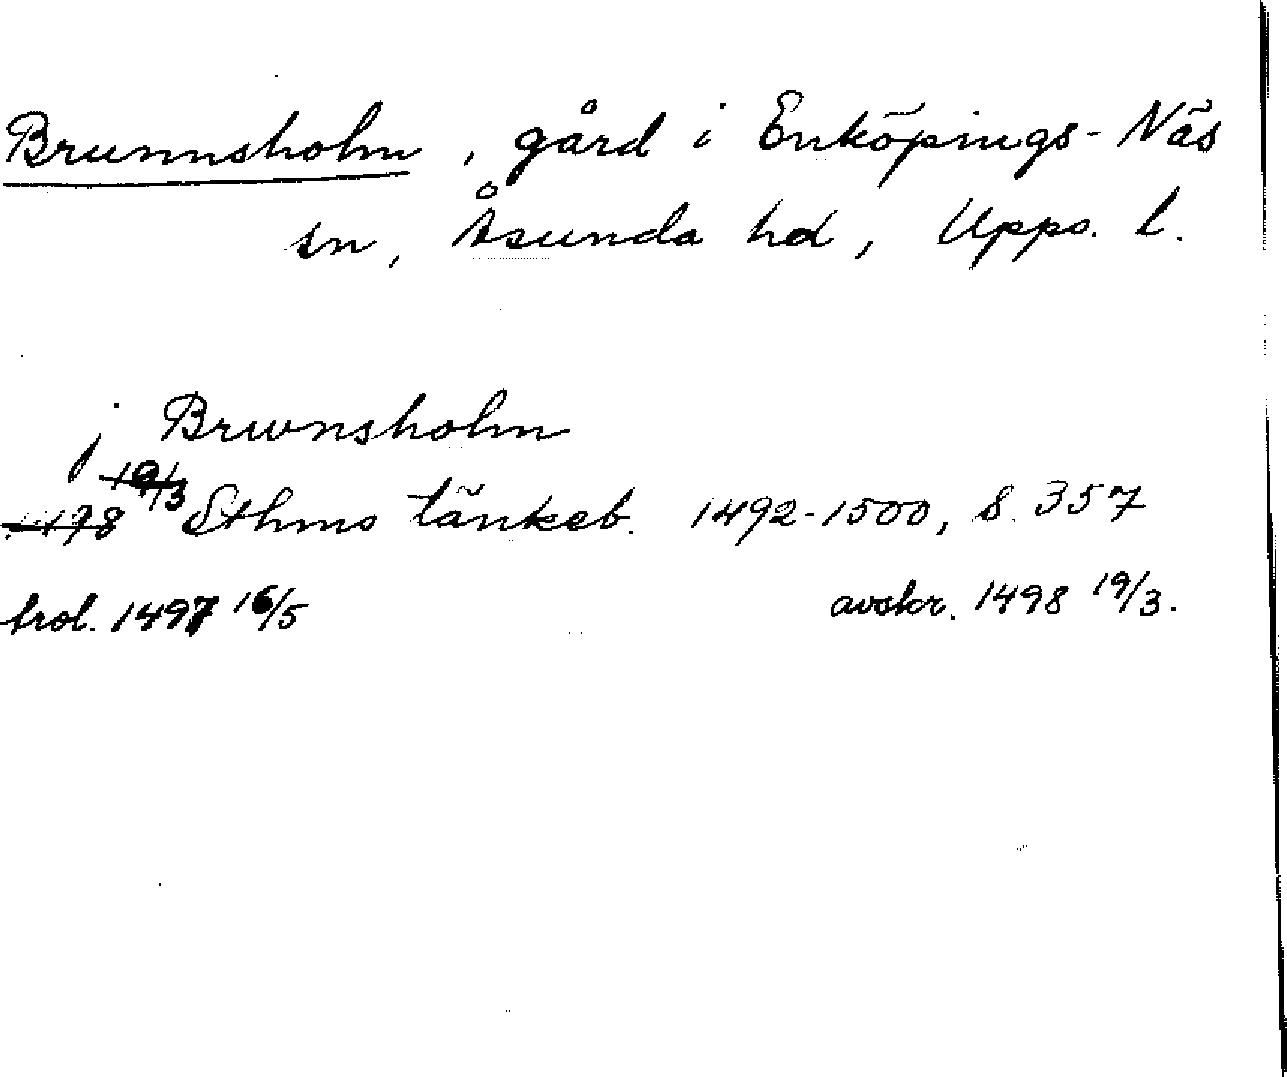 Brunnsholm, gård i Enköpings-Näs
sn, Åsunda hd, Upps. l.
j Brwnsholm
19/3
1498 Sthms tänkeb. 1492-1500, s. 357
trol. 1497 16/5 avskr. 1498 19/3.